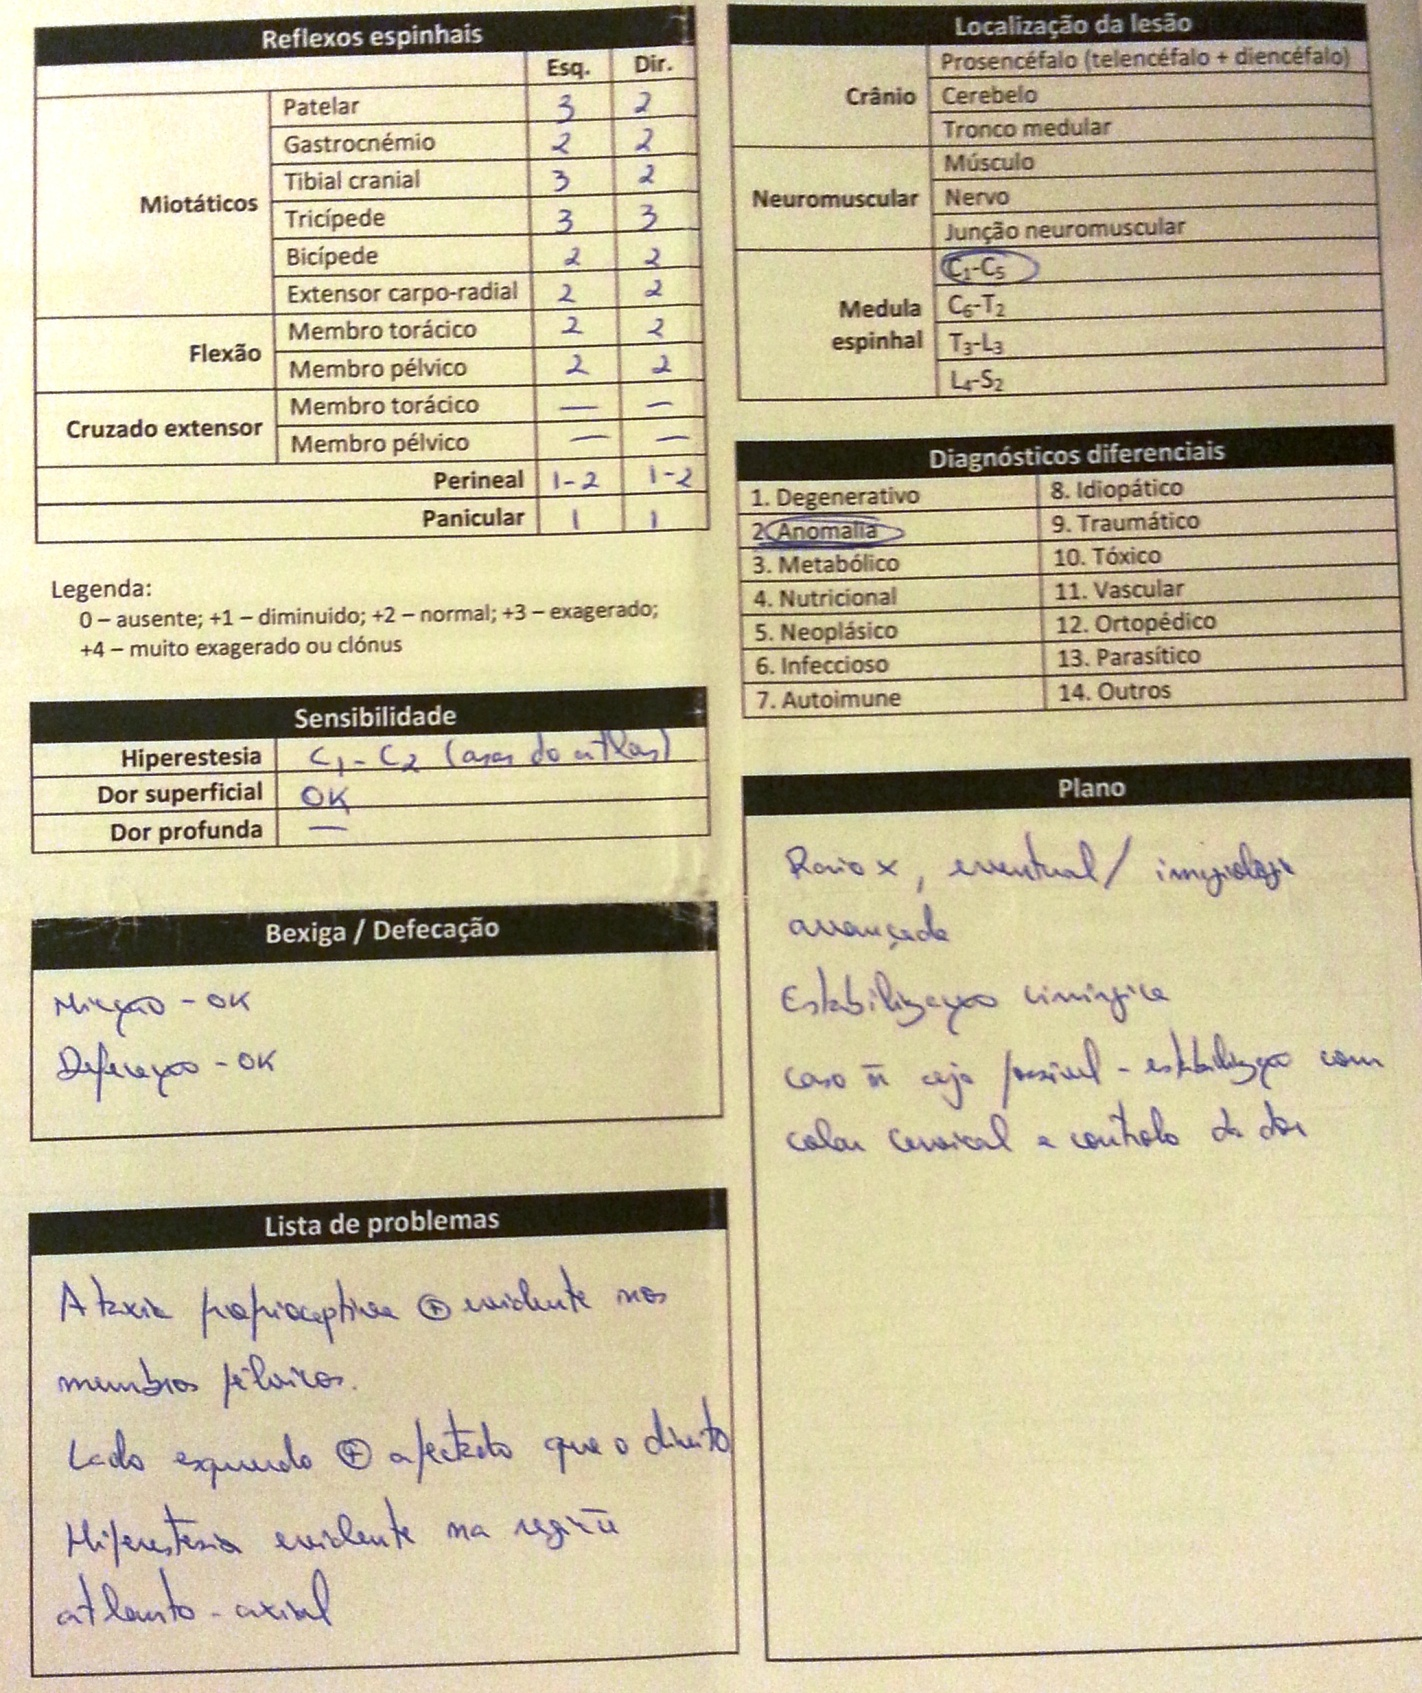 Reflexos espinhais
Esq. Dir.
Miotáticos
Patelar 3 2
Gastrocnémio 2 2
Tibial cranial 3 2
Tricípede 3 3
Bicípede 2 2
Extensor carpo-radial 2 2
Flexão
Membro torácico 2 2
Membro pélvico 2 2
Cruzado extensor
Membro torácico — —
Membro pélvico — —
Perineal 1-2 1-2
Panicular 1 1
Legenda:
0 – ausente; +1 – diminuido; +2 – normal; +3 – exagerado;
+4 – muito exagerado ou clónus
Sensibilidade
Hiperestesia C1-C2 (asas do atlas)
Dor superficial OK
Dor profunda —
Bexiga / Defecação
Micção - OK
Defecação - OK
Lista de problemas
Ataxia proprioceptiva ⊕ evidente nos
membros pélvicos.
Lado esquerdo ⊕ afectado que o direito
Hiperestesia evidente na região
atlanto-axial
Localização da lesão
Crânio
Prosencéfalo (telencéfalo + diencéfalo)
Cerebelo
Tronco medular
Neuromuscular
Músculo
Nervo
Junção neuromuscular
Medula
espinhal
C1-C5
C6-T2
T3-L3
L4-S2
Diagnósticos diferenciais
1. Degenerativo 8. Idiopático
2. Anomalia 9. Traumático
3. Metabólico 10. Tóxico
4. Nutricional 11. Vascular
5. Neoplásico 12. Ortopédico
6. Infeccioso 13. Parasítico
7. Autoimune 14. Outros
Plano
Raio x, eventual/ imagiologia
avançada
Estabilização cirúrgica
caso ñ seja possível - estabilização com
colar cervical e controlo da dor